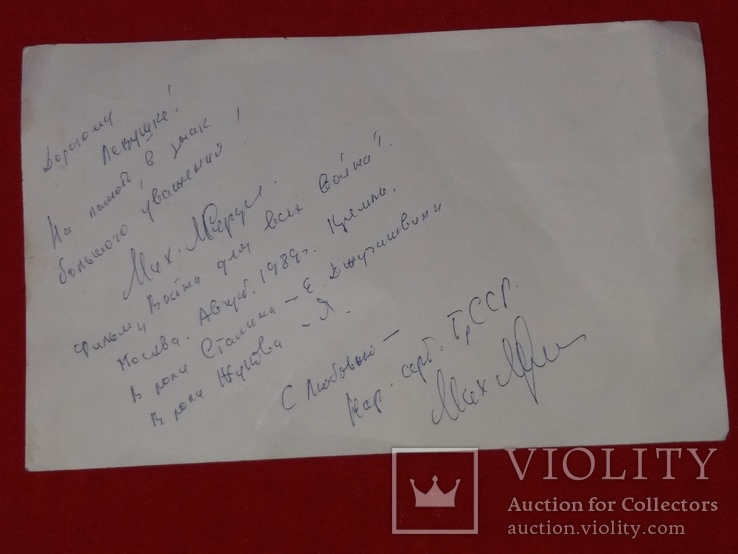 Дорогому
Левушке!
На память в знак
большого уважения!
Мах.
Фильм "Война для всех война".
Москва. Август. 1989г. Кремль.
В роли Сталина – Е. Джугашвили
В роли Жукова – Я.
С Любовью –
Нар. арт. Гр.ССР.
Мах
VIOLITY
Auction for Collectors
auction.violity.com